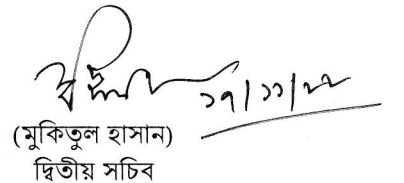 ১৭/১১/২২
(মুকিতুল হাসান)
দ্বিতীয় সচিব